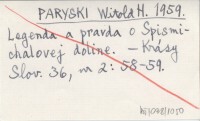 PARYSKI Witold H. 1959.
Legenda a pravda o Spismi-
chalovej doline. – Krásy
Slov. 36, no 2: 58-59.